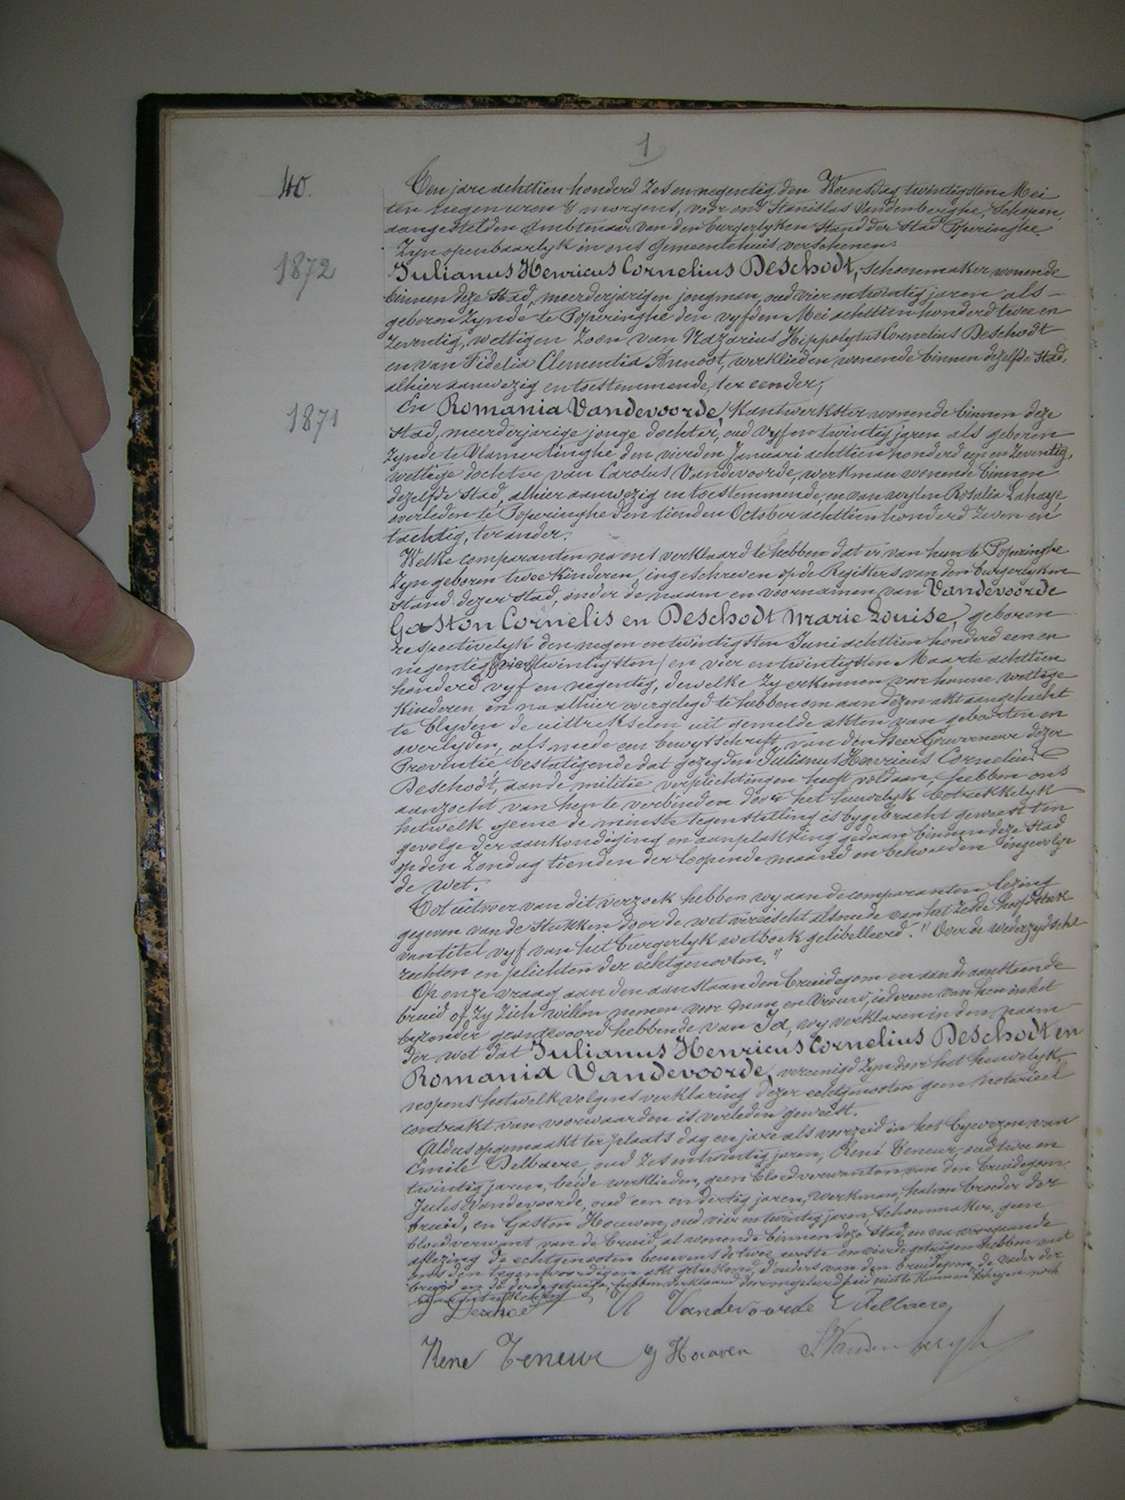 1
40.
Den jare achttien honderd zes en negentig den Woensdag twintigsten Mei
ten negen uren 's morgens, voor ons Stanislas Vandenberghe, Schepen,
aangestelden Ambtenaar van den burgerlyken Stand der Stad Poperinghe
Zyn openbaarlyk in ons Gemeentehuis verschenen:
1872
Julianus Henricus Cornelius Deschodt, schoenmaker wonende
binnen deze Stad, meerderjarigen jongman, oud vier en twintig jaren als
geboren zynde te Poperinghe den vyfden Mei achttien honderd twee en
zeventig, wettigen zoon van Nazarius Hippolytus Cornelius Deschodt
en van Fidelia Clementia Annoot, werklieden wonende binnen dezelfde Stad,
alhier aanwezig en toestemmende, ter eender;
1871
En Romania Vandevoorde, Kantwerkster wonende binnen deze
Stad, meerderjarige jonge dochter, oud vyf en twintig jaren als geboren
zynde te Vlamertinghe den vierden Januari achttien honderd een en zeventig,
wettige dochter van Carolus Vandevoorde, werkman wonende binnen
dezelfde Stad, alhier aanwezig en toestemmende, en van wylen Rosalia Lahaye
overleden te Poperinghe den tienden October achttien honderd zeven en
tachtig, ter ander.
Welke comparanten na ons verklaard te hebben dat er van hun te Poperinghe
zyn geboren twee Kinderen, ingeschreven op de Registers van den burgerlyken
stand dezer Stad, onder de naam en voornamen van Vandevoorde
Gaston Cornelis en Deschodt Marie Louise, geboren
respectivelyk den negen en twintigsten Juni achttien honderd een en
negentig en vier en twintigsten Maarte achttien
honderd vyf en negentig, dewelke zy erkennen voor hunne wettige
Kinderen en na alhier voorgelegd te hebben om aan dezen akt aangehecht
te blyven de uittrekselen uit gemelde akten van geboorten en
overlyden, als mede een bewysschrift van den heer Gouverneur dezer
Provintie bestatigende dat gezegden Julianus Henricus Cornelius
Deschodt, aan de militie verplichtingen heeft voldaan, hebben ons
aanzocht van hen te verbinden door het huwelyk betrekkelyk
hetwelk geene de minste tegenstelling is bygebracht geweest ten
gevolge der aankondiging en aanplakking gedaan binnen deze Stad
op den Zondag tienden der loopende maand en behouden ingevolge
de wet.
Tot uitvoer van dit verzoek hebben wy aan de comparanten lezing
gegeven van de stukken door de wet vereischt alsmede van het zesde hoofdstuk
van titel vyf van het burgerlyk wetboek gelibelleerd: "Over de wederzydsche
rechten en plichten der echtgenooten."
Op onze vraag aan den aanstaanden bruidegom en aan de aanstaande
bruid of zy zich willen nemen voor man en vrouw, iedereen van hen enkel
byzonder geantwoord hebbende van Ja, wy verklaren in den naam
der wet dat Julianus Henricus Cornelius Deschodt en
Romania Vandevoorde, vereenigd zyn door het huwelyk,
nopens hetwelk volgens verklaring dezer echtgenooten geen notarieel
contrakt van voorwaarden is verleden geweest.
Aldus opgemaakt ter plaats dag en jare als voorzeid in het bywezen van
Emile Delbaere, oud zes en twintig jaren, René Teneur, oud twee en
twintig jaren, beide werklieden, geen bloedverwanten van den bruidegom,
Jules Vandevoorde, oud een en dertig jaren, werkman, halven broeder der
bruid, en Gaston Houwen, oud vier en twintig jaren, schoenmaker, geen
bloedverwant van de bruid, al wonende binnen deze Stad, en na voorgaande
aflezing de echtgenooten benevens de twee eerste en vierde getuigen hebben met
ons den tegenwoordigen akt geteekend, d'ouders van den bruidegom, de vader der
bruid en de derde getuige hebben verklaard door ongeleerdheid niet te kunnen schryven noch
J Deschodt R Vandevoorde E Delbaere
René Teneur G Houwen S Vandenberghe